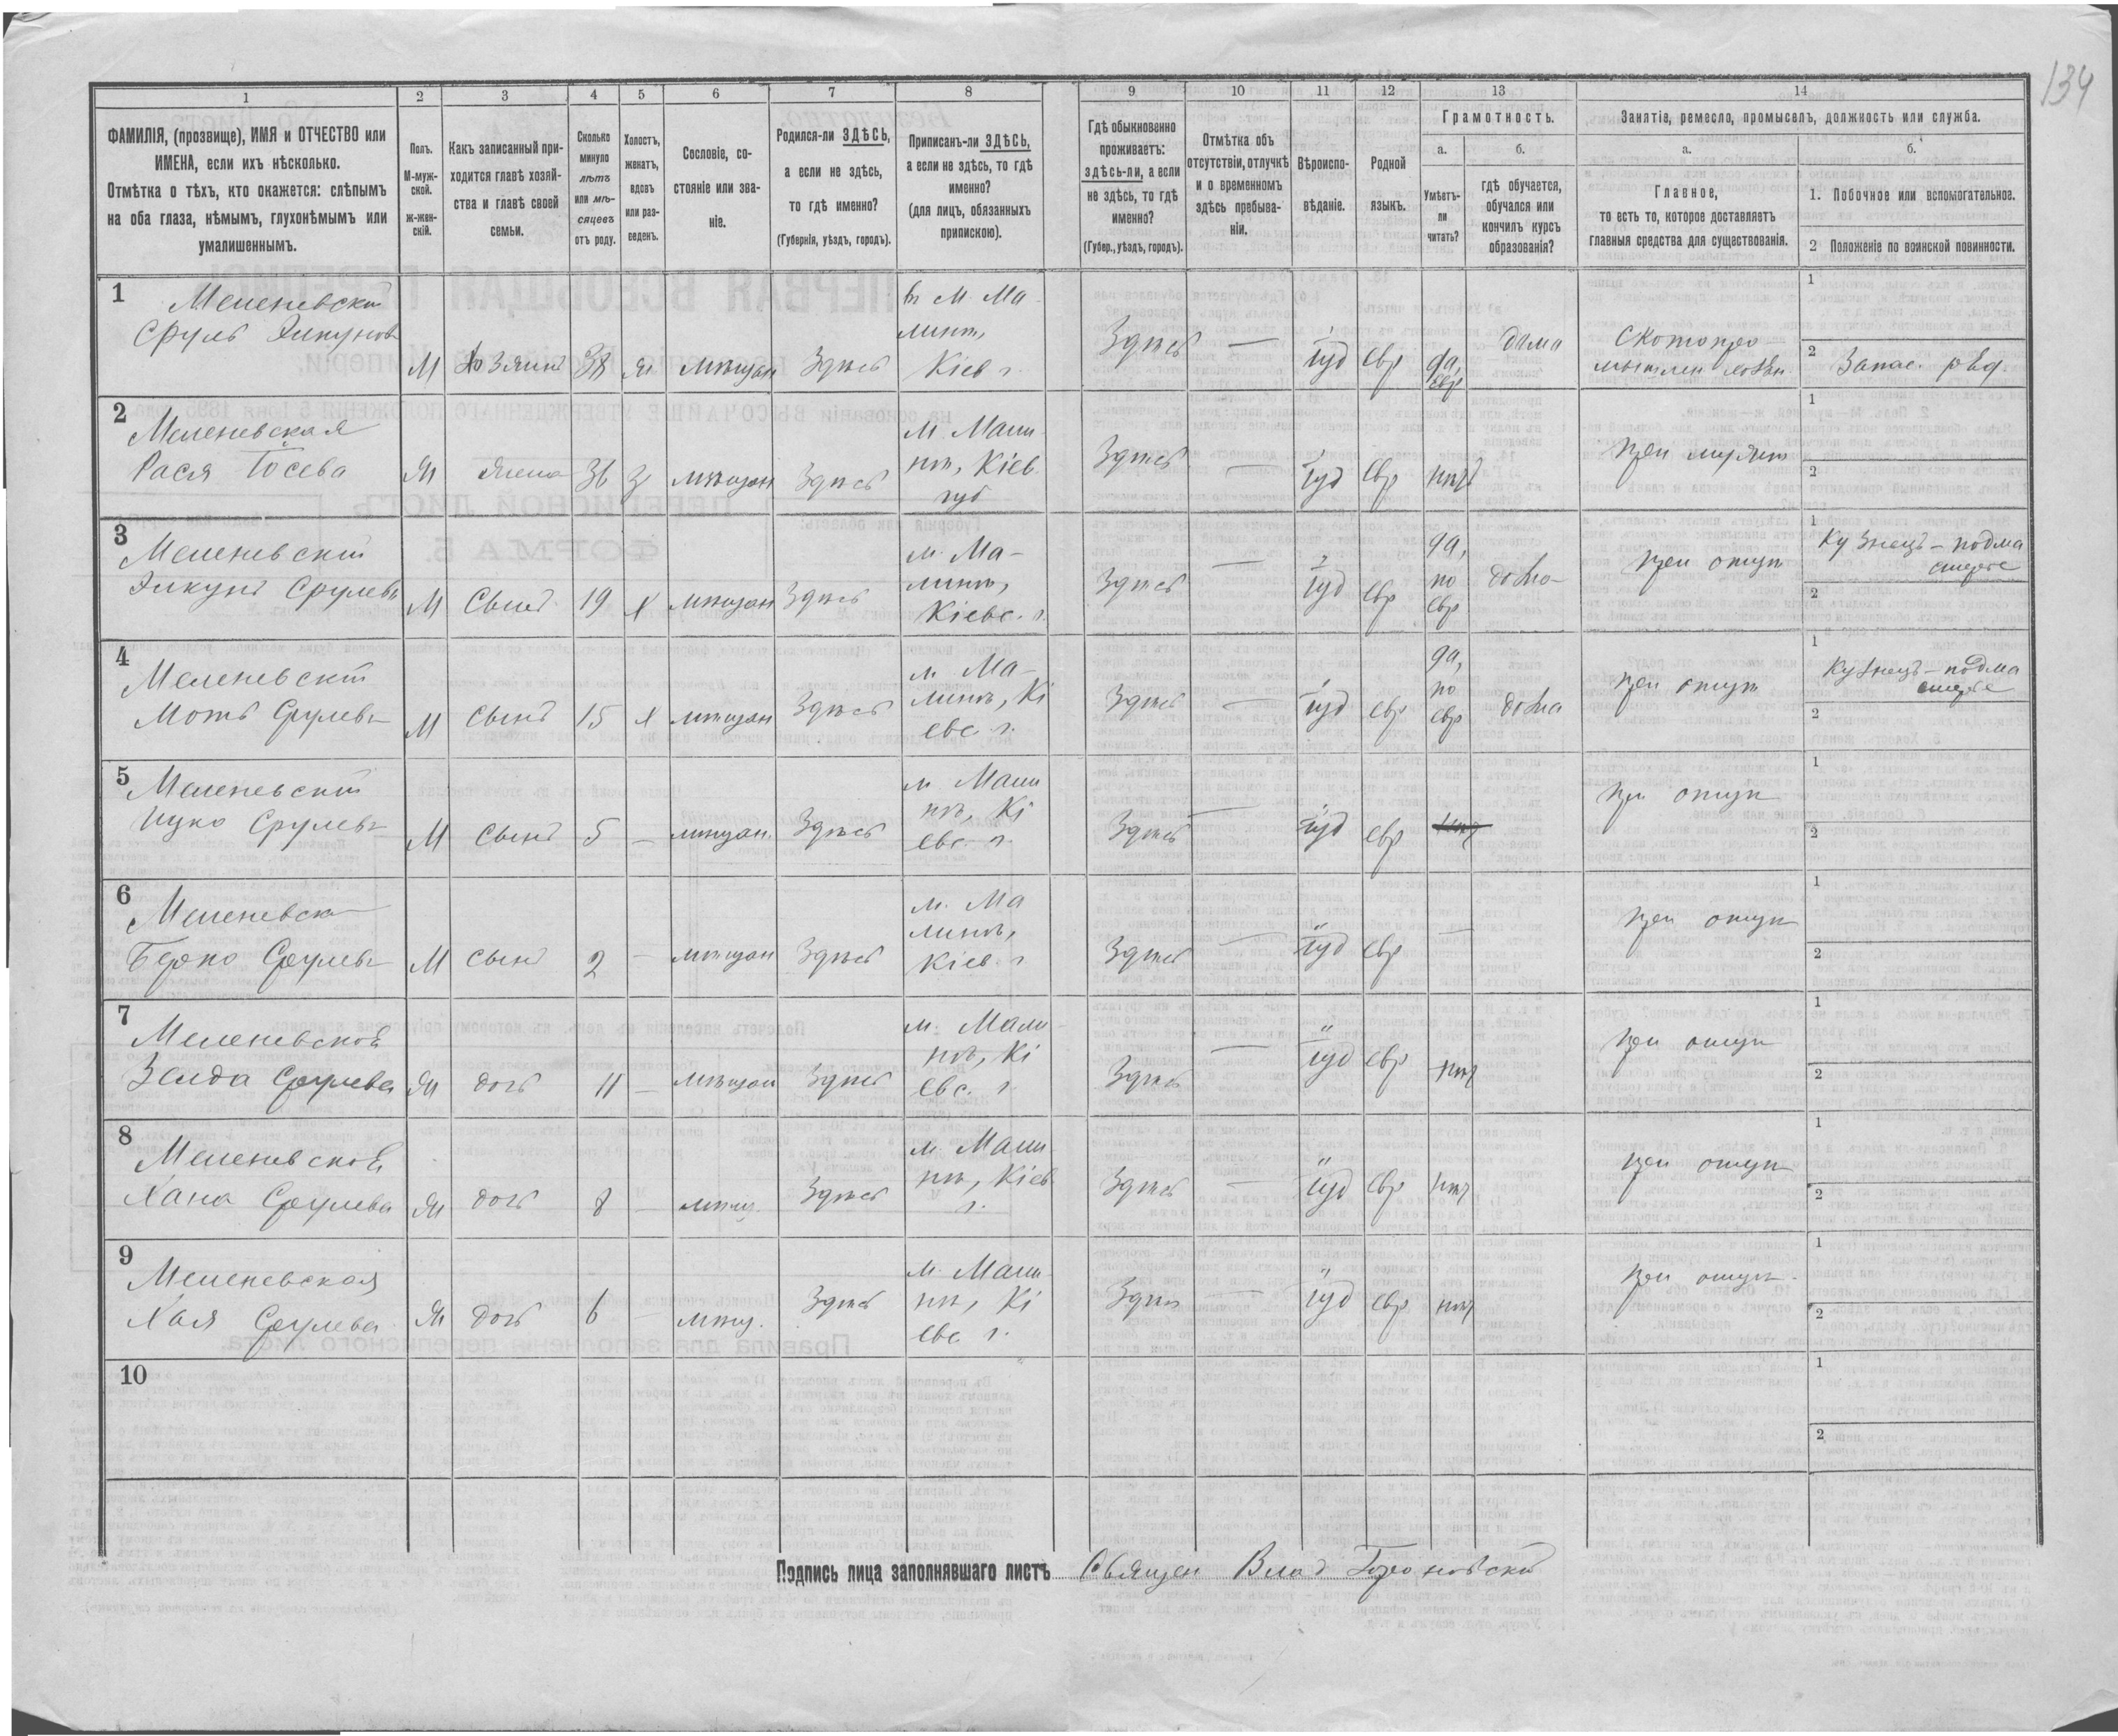 134
1 2 3 4 5 6 7 8 9 10 11 12 13 14
ФАМИЛІЯ, (прозвище), ИМЯ и ОТЧЕСТВО или
ИМЕНА, если ихъ нѣсколько.
Отмѣтка о тѣхъ, кто окажется: слѣпымъ
на оба глаза, нѣмымъ, глухонѣмымъ или
умалишеннымъ.
Полъ.
М-муж-
ской.
ж-жен-
скій.
Какъ записанный при-
ходится главѣ хозяй-
ства и главѣ своей
семьи.
Сколько
минуло
лѣтъ
или мѣ-
сяцевъ
отъ роду.
Холостъ,
женатъ,
вдовъ
или раз-
веденъ.
Сословіе, со-
стояніе или зва-
ніе.
Родился-ли ЗДѢСЬ,
а если не здѣсь,
то гдѣ именно?
(Губернія, уѣздъ, городъ).
Приписанъ-ли ЗДѢСЬ,
а если не здѣсь, то гдѣ
именно?
(для лицъ, обязанныхъ
припискою).
Гдѣ обыкновенно
проживаетъ:
здѣсь-ли, а если
не здѣсь, то гдѣ
именно?
(Губер., уѣздъ, городъ).
Отмѣтка объ
отсутствіи, отлучкѣ
и о временномъ
здѣсь пребыва-
ніи.
Вѣроиспо-
вѣданіе.
Родной
языкъ.
Грамотность.
а.
Умѣетъ-
ли
читать?
б.
гдѣ обучается,
обучался или
кончилъ курсъ
образованія?
Занятіе, ремесло, промыселъ, должность или служба.
а.
Главное,
то есть то, которое доставляетъ
главныя средства для существованія.
б.
1. Побочное или вспомогательное.
2 Положеніе по воинской повинности.
1
Меленевскій
Сруль Элкуновъ
М Хозяинъ 38 ж мѣщан Здѣсь
въ М. Ма-
линѣ,
Кіев г.
Здѣсь — іуд евр да, евр дома
Скотопро-
1
2 Запас. ряд
2
Меленевская
Рася Іосева
Ж жена 36 з мѣщан Здѣсь
М. Мали-
нѣ, Кіев.
губ
Здѣсь — іуд евр нѣт
при
1
2
3
Меленевскій
Элкунъ Срулев
М Сынъ 19 х мѣщан Здѣсь
м. Ма-
линѣ,
Кіевс. г.
Здѣсь — іуд евр
да,
по
евр
дома
при отцѣ
1 Кузнецъ-подма
стерье
2
4
Меленевскій
Моть Срулев
М Сынъ 15 х мѣщан Здѣсь
м. Ма-
линѣ, Кі
евс. г.
Здѣсь — іуд евр
да,
по
евр
дома
при отцѣ
1 Кузнецъ-подма
стерье
2
5
Меленевскій
Ицко Срулев
М Сынъ 5 — мѣщан. Здѣсь
м. Мали
нѣ, Кі
евс. г.
Здѣсь — іуд евр нѣт
при отцѣ
1
2
6
Меленевск
Берко Срулев
М Сынъ 2 — мѣщан Здѣсь
м. Ма
линѣ,
Кіев. г
Здѣсь — іуд евр —
при отцѣ
1
2
7
Меленевская
Зелда Срулева
Ж дочь 11 — мѣщан Здѣсь
м. Мали-
нѣ, Кі
евс. г.
Здѣсь — іуд евр нѣт
при отцѣ
1
2
8
Меленевская
Хана Срулева
Ж дочь 8 — мѣщ. Здѣсь
м. Мали
нѣ, Кіев
г.
Здѣсь — іуд евр нѣт
при отцѣ
1
2
9
Меленевская
Хая Срулева
Ж дочь 6 — мѣщ. Здѣсь
м. Мали-
нѣ, Кі
евс г.
Здѣсь — іуд евр нѣт
при отцѣ
1
2
10
1
2
Подпись лица заполнявшаго листъ Священ Влад